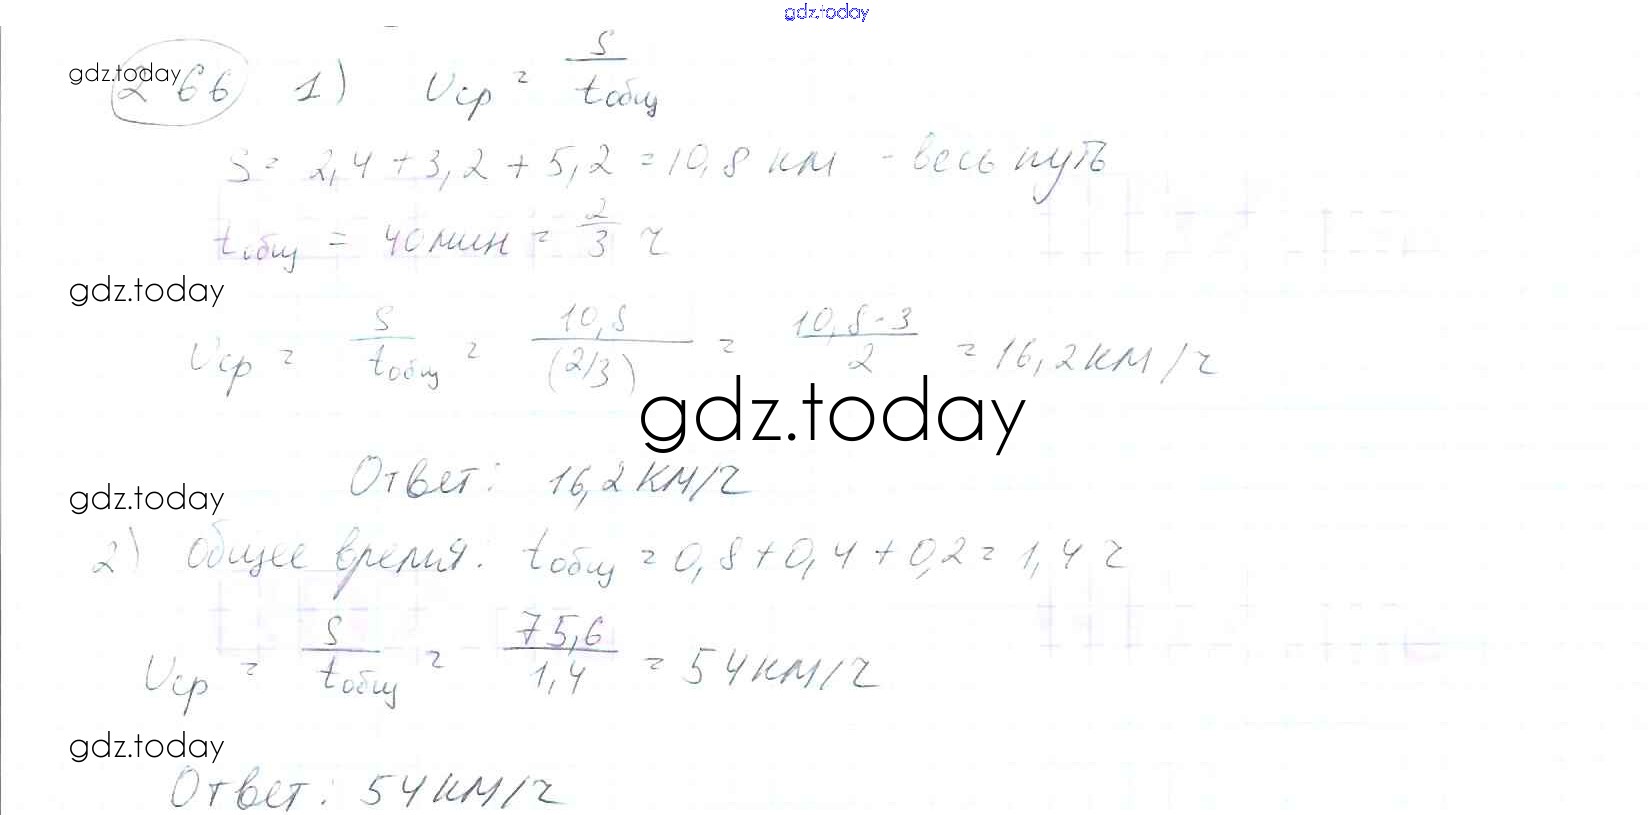 gdz.today
gdz.today
266 1) υср = S/tобщ
S = 2,4 + 3,2 + 5,2 = 10,8 км - весь путь
tобщ = 40 мин = 2/3 ч
gdz.today
υср = S/tобщ = 10,8/(2/3) = 10,8·3/2 = 16,2 км/ч
gdz.today
Ответ: 16,2 км/ч
gdz.today
2) общее время: tобщ = 0,8 + 0,4 + 0,2 = 1,4 ч
υср = S/tобщ = 75,6/1,4 = 54 км/ч
gdz.today
Ответ: 54 км/ч